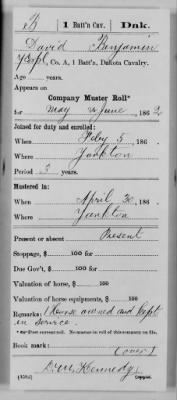 B 1 Batt'n Cav. Dnk.
David Benjamin
Capt, Co. A, 1 Batt'n, Dakota Cavalry.
Age years.
Appears on
Company Muster Roll*
for May & June, 1862
Joined for duty and enrolled:
When Feby 5, 186 .
Where Yankton
Period 3 years.
Mustered in:
When April 30, 186 .
Where Yankton
Present or absent Present
Stoppage, $ 100 for
Due Gov't, $ 100 for
Valuation of horse, $ 100
Valuation of horse equipments, $ 100
Remarks: 1 Horse owned and kept
in service.
Book mark:
(over)
D. M. Kennedy
Copyist.